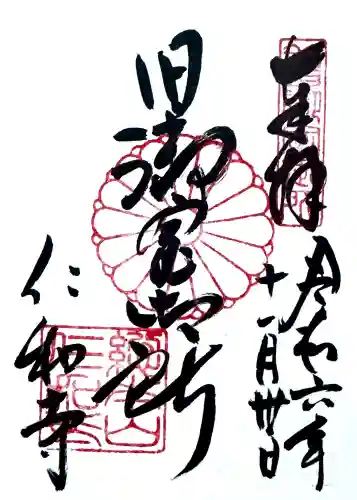 奉拝
令和六年
十一月卅日
旧御室御所
仁和寺